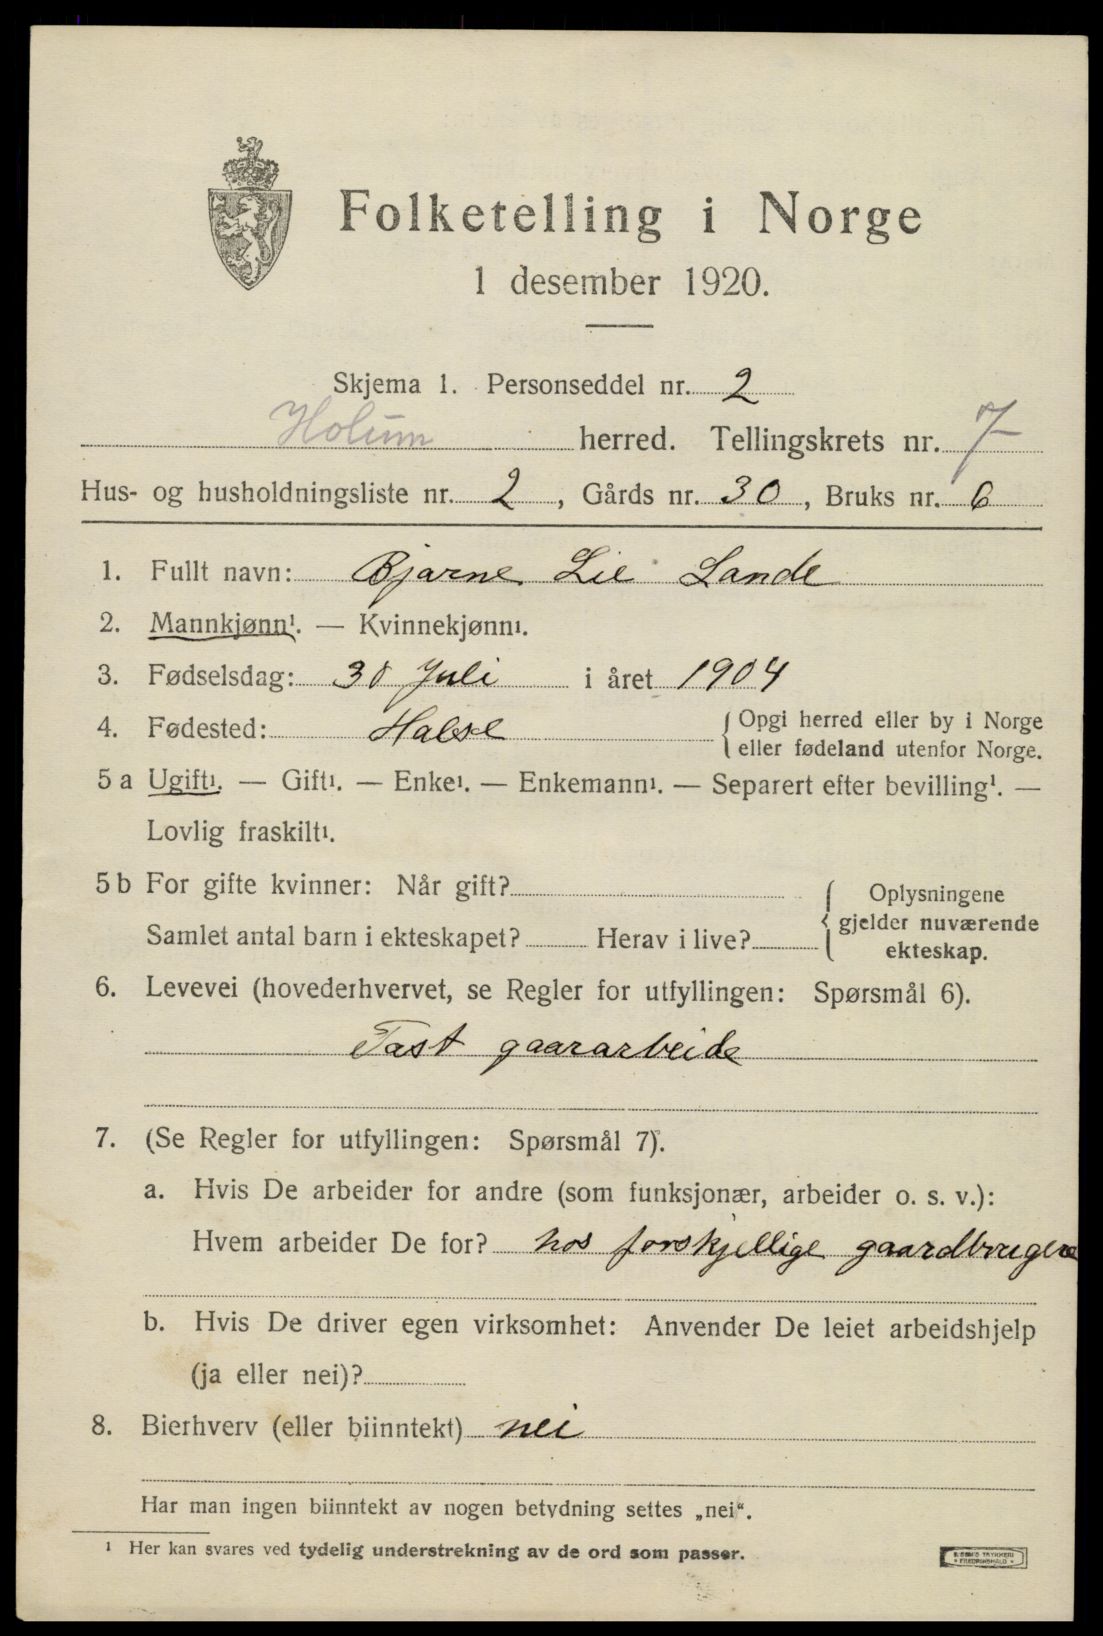 Folketelling i Norge
1 desember 1920.
Skjema 1. Personseddel nr. 2
Holum herred. Tellingskrets nr. 7
Hus- og husholdningsliste nr. 2, Gårds nr. 30, Bruks nr. 6
1. Fullt navn: Bjarne Lie Lande
2. Mannkjønn¹. — Kvinnekjønn¹.
3. Fødselsdag: 30 Juli i året 1904
4. Fødested: Halse { Opgi herred eller by i Norge
eller fødeland utenfor Norge.
5 a Ugift¹. — Gift¹. — Enke¹. — Enkemann¹. — Separert efter bevilling¹. —
Lovlig fraskilt¹.
5 b For gifte kvinner: Når gift? { Oplysningene
gjelder nuværende
Samlet antal barn i ekteskapet? Herav i live?
ekteskap.
6. Levevei (hovederhvervet, se Regler for utfyllingen: Spørsmål 6).
Fast gaararbeide
7. (Se Regler for utfyllingen: Spørsmål 7).
a. Hvis De arbeider for andre (som funksjonær, arbeider o. s. v.):
Hvem arbeider De for? hos forskjellige gaardbrugere
b. Hvis De driver egen virksomhet: Anvender De leiet arbeidshjelp
(ja eller nei)?
8. Bierhverv (eller biinntekt) nei
Har man ingen biinntekt av nogen betydning settes „nei“.
¹ Her kan svares ved tydelig understrekning av de ord som passer.